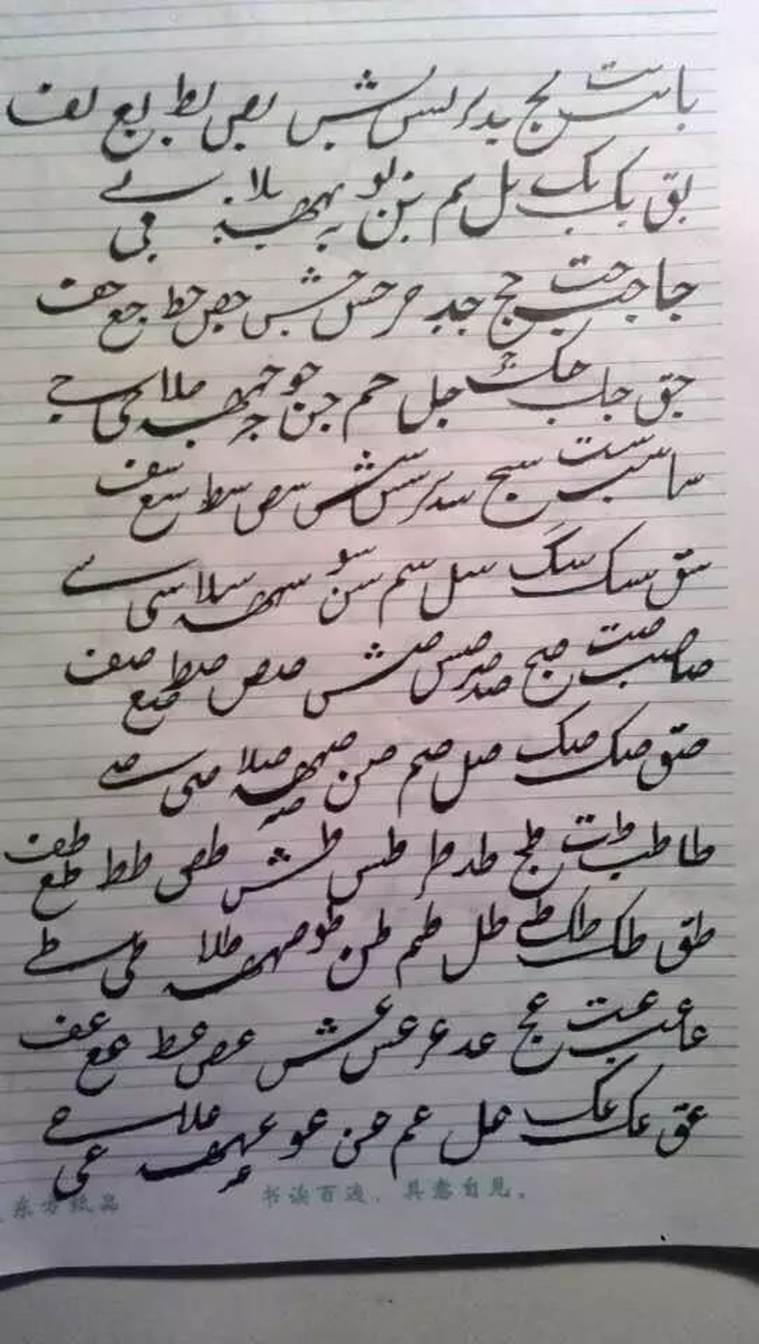 با بب بت بج بد بر بس بش بص بط بع بف
بق بک بک بل بم بن بو به بهمفہ بلا بی بے
جا جب جت جج جد جر جس جش جص جط جع جف
جق جاب جک جل جم جن جو جه جهمفہ جلا جی جے
سا سب ست سج سد سر سس سش سص سط سع سف
سق سک سک سل سم سن سو سهمفہ سلا سی سے
صا صب صت صج صد صر صس صش صص صط صع صف
صق صک صک صل صم صن صهمفہ صه صلا صی صے
طا طب طت طج طد طر طس طش طص طط طع طف
طق طک طک طل طم طن طو طهمفہ طلا طی طے
عا عب عت عج عد عر عس عش عص عط عع عف
عق عک عک عل عم عن عو عهمفہ علا عی عے
书读百遍，其意自见。
东方纸品